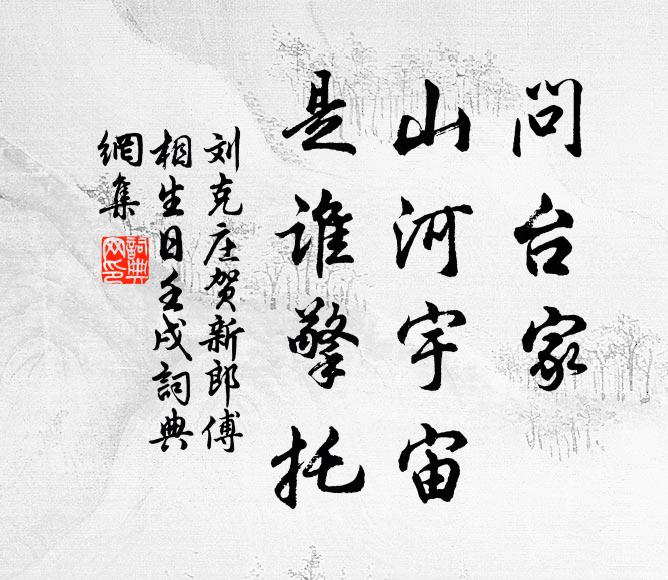 问台家
山河宇宙
是谁擎托
刘克庄贺新郎傅
相生日壬戌詞典
網集
詞典网印